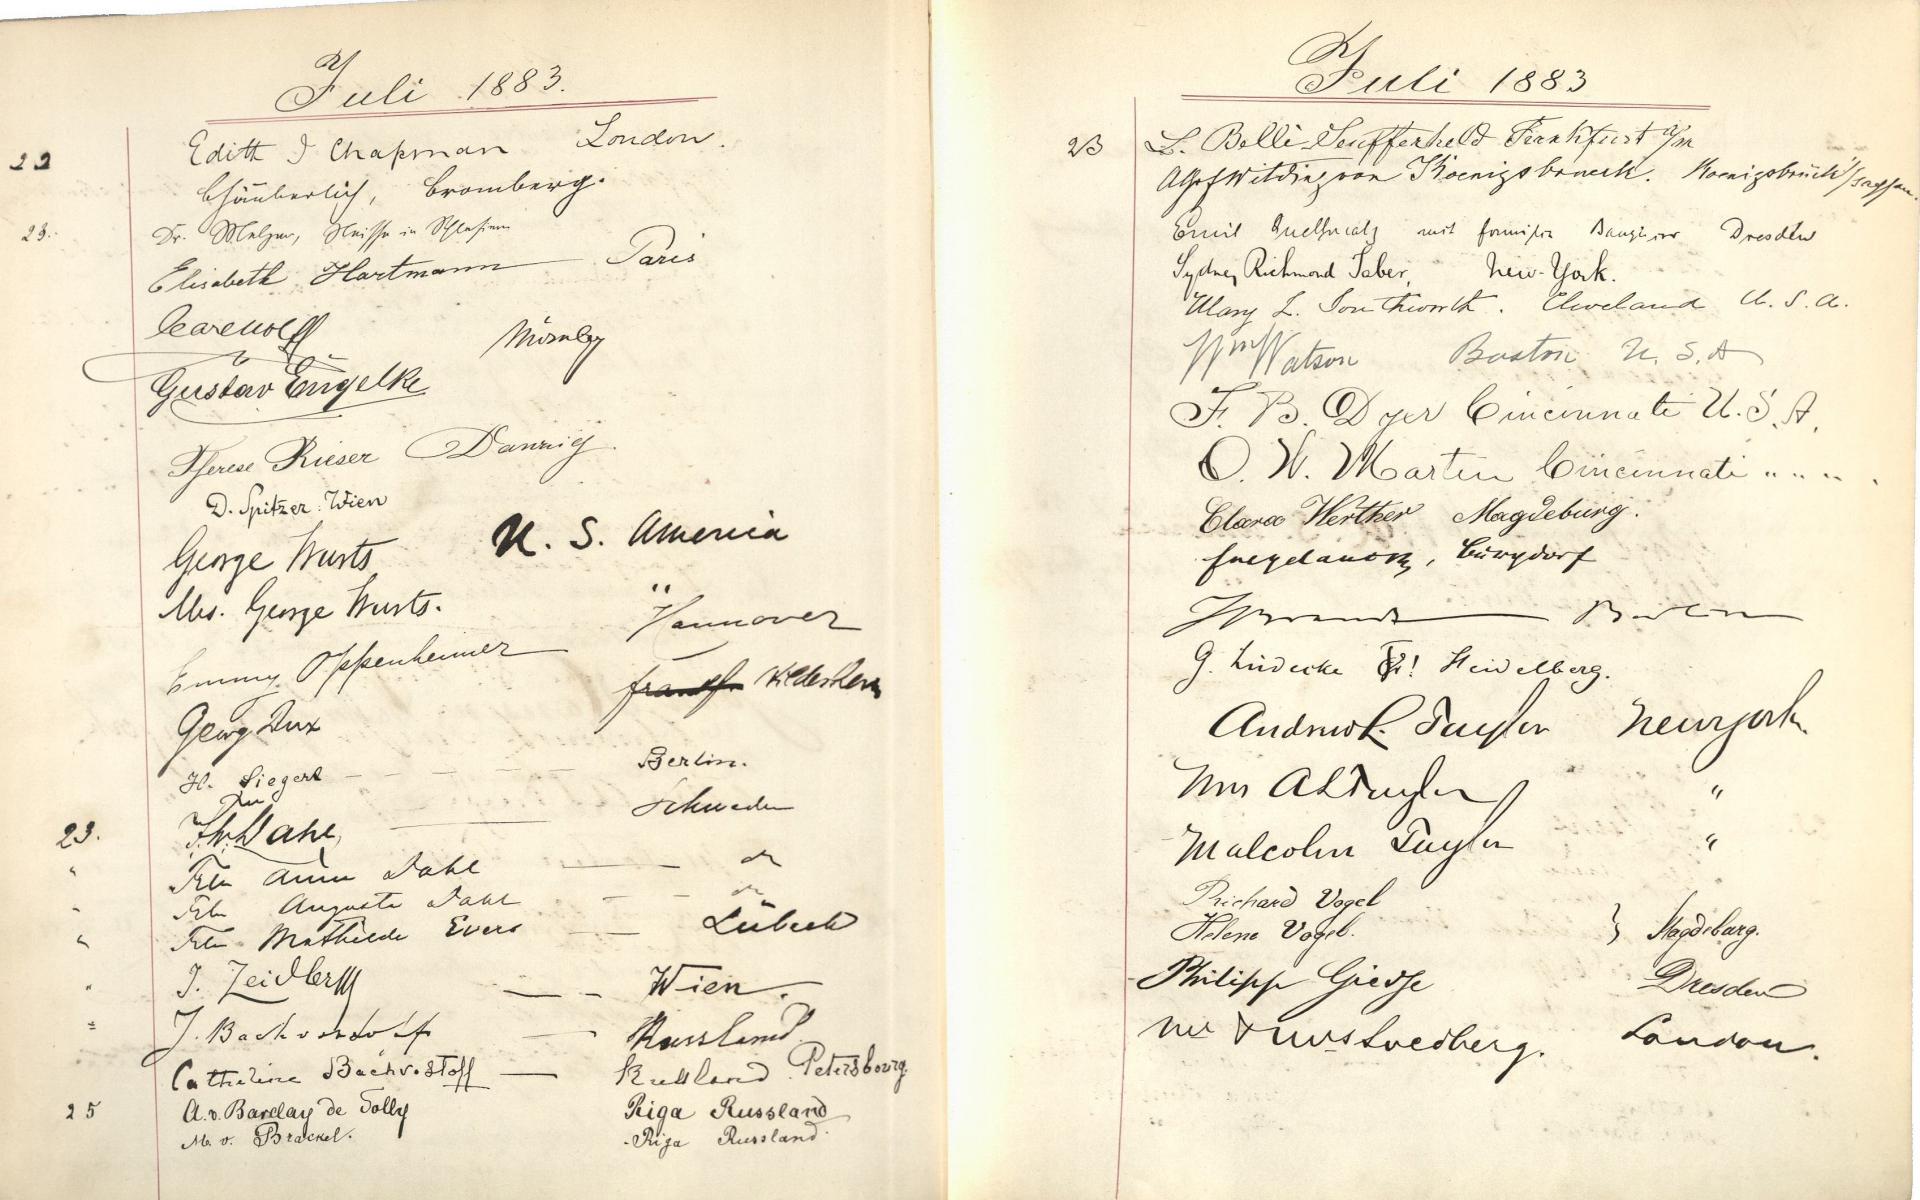 Juli 1883.
22 Edith J Chapman London.
Schäuberlich, Bromberg.
23. Dr. Melzer, Neisse in Schlesien
Elisabeth Hartmann Paris
Carl Wolff Nürnbg
Gustav Engelke
Therese Rieser Danzig
D. Spitzer. Wien
George Wurts U. S. America
Mrs. George Wurts. "
Emmy Oppenheimer Hannover
Georg Dux Hildesheim
H. Siegert - - - - Berlin.
23. F. W. Dahl, Schweden
" Frln Anna Dahl do
" Frln Auguste Dahl do
" Frln Mathilde Evers Lübeck
" J. Zeidler Wien.
" J. Bachvostoff Russland
Catherine Bachvostoff Russland Petersbourg
25 A. v. Barclay de Tolly Riga Russland
M. v. Brackel. Riga Russland.
Juli 1883
23 L. Belli-Seufferheld Frankfurt a/m
Wilding von Koenigsbrueck. Koenigsbrück/Sachsen.
Emil mit Familie Dresden
Sydney Richmond Taber, New-York.
Mary L. Southworth. Cleveland U. S. A.
Wm Watson Boston U. S. A
F. B. Dyer Cincinnati U. S. A.
O. W. Martin Cincinnati " " " .
Clara Werther Magdeburg.
Burgdorf
Brandt Berlin
G. Lüdecke Heidelberg.
Andrew L. Taylor New york.
Mrs A L Taylor "
Malcolm Taylor "
Richard Vogel
Helene Vogel. } Magdeburg.
Philipp Giesse Dresden
Mr & Mrs Swedberg. London.